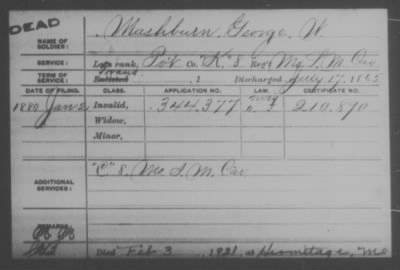 DEAD
NAME OF SOLDIER: Mashburn, George, W.
SERVICE: Late rank, Pvt Co. K. 8 Reg't Mo. S. M. Cav
TERM OF SERVICE: Enlisted , 1 Discharged July 17, 1865
DATE OF FILING. CLASS. APPLICATION NO. LAW. CERTIFICATE NO.
1880 Jan 2 Invalid, 344.377 210.870
Widow,
Minor,
ADDITIONAL SERVICES: "E" 8. Mo. S. M. Cav
REMARKS:
Died Feb 3, 1921, at Hermitage, Mo